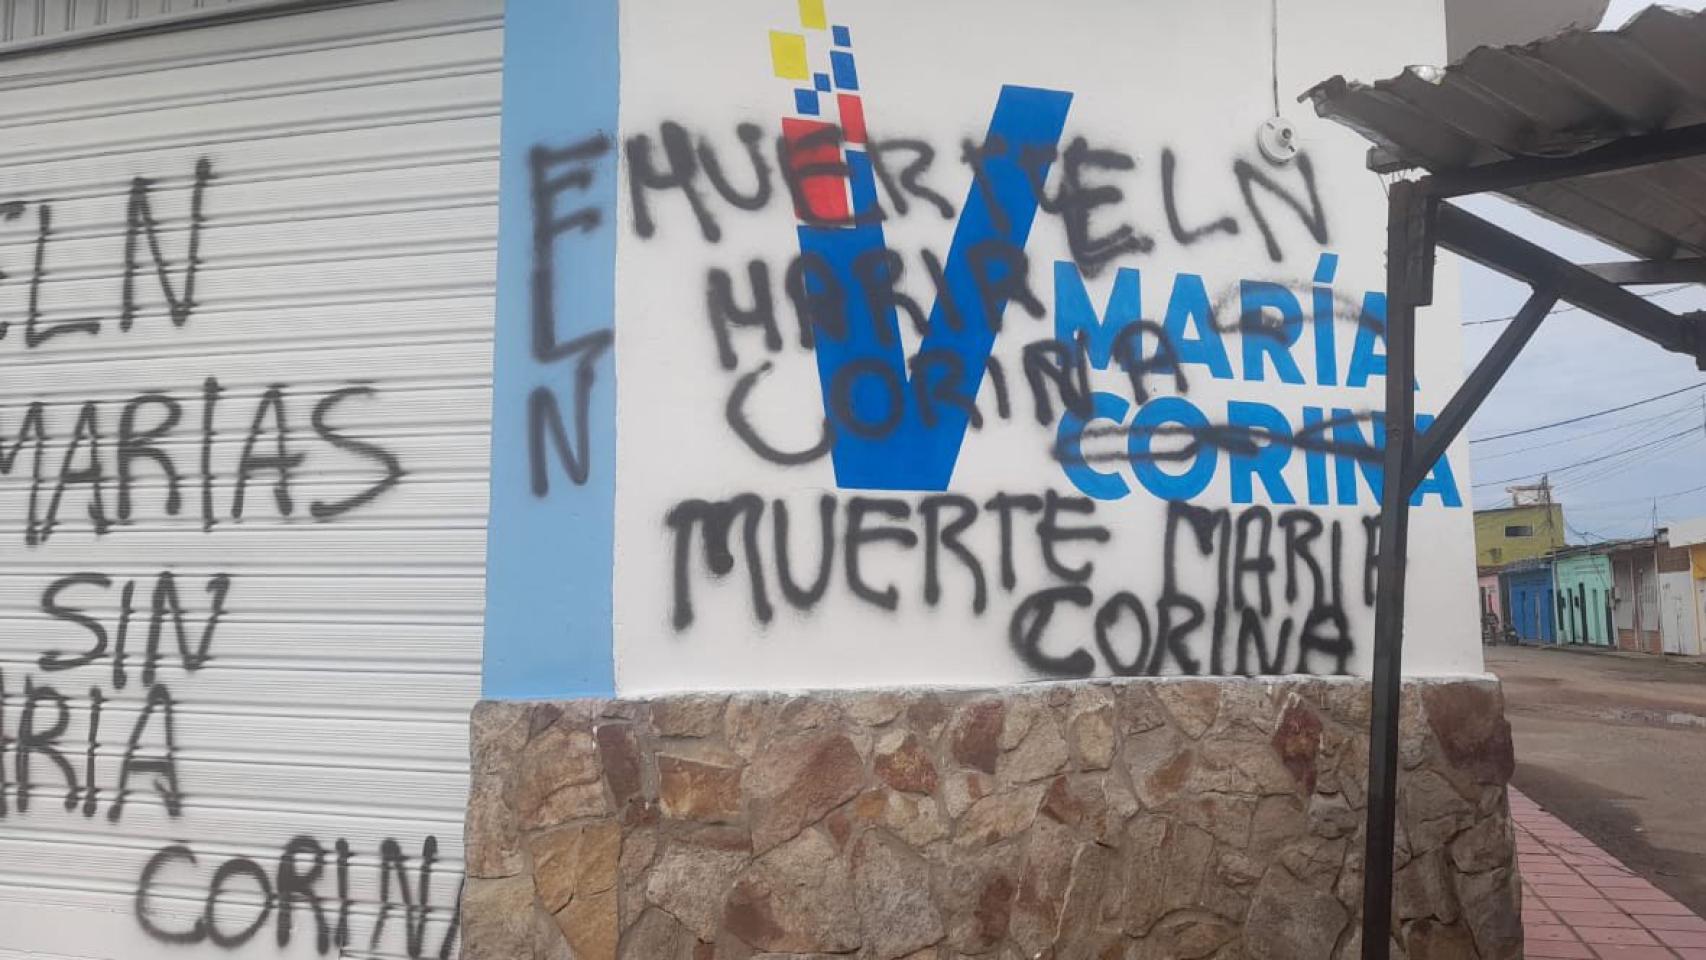 ELN
MARIAS
SIN
MARIA
CORINA
ELN
MUERTE ELN
MARIA
CORINA
V
MARÍA
CORINA
MUERTE MARIA
CORINA